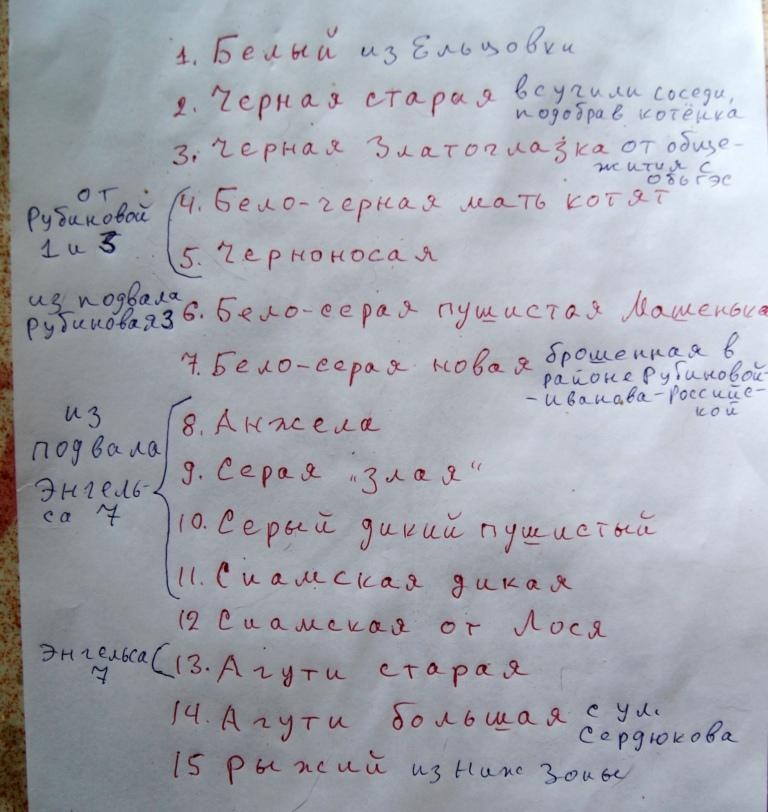 1. Белый из Ельцовки
2. Черная старая всучили соседи,
подобрав котёнка
3. Черная Златоглазка от обще-
жития с
ОбьГЭС
от
Рубиновой
1 и 3
4. Бело-черная мать котят
5. Черноносая
из подвала
Рубиновая 3
6. Бело-серая пушистая Машенька
7. Бело-серая новая брошенная в
районе Рубиновой-
-Иванава-Российс-
кой
из
подвала
Энгель-
са 7
8. Анжела
9. Серая „злая“
10. Серый дикий пушистый
11. Сиамская дикая
12 Сиамская от Лося
Энгельса
7
13. Агути старая
14. Агути большая с ул.
Сердюкова
15 Рыжий из Ниж Зоны